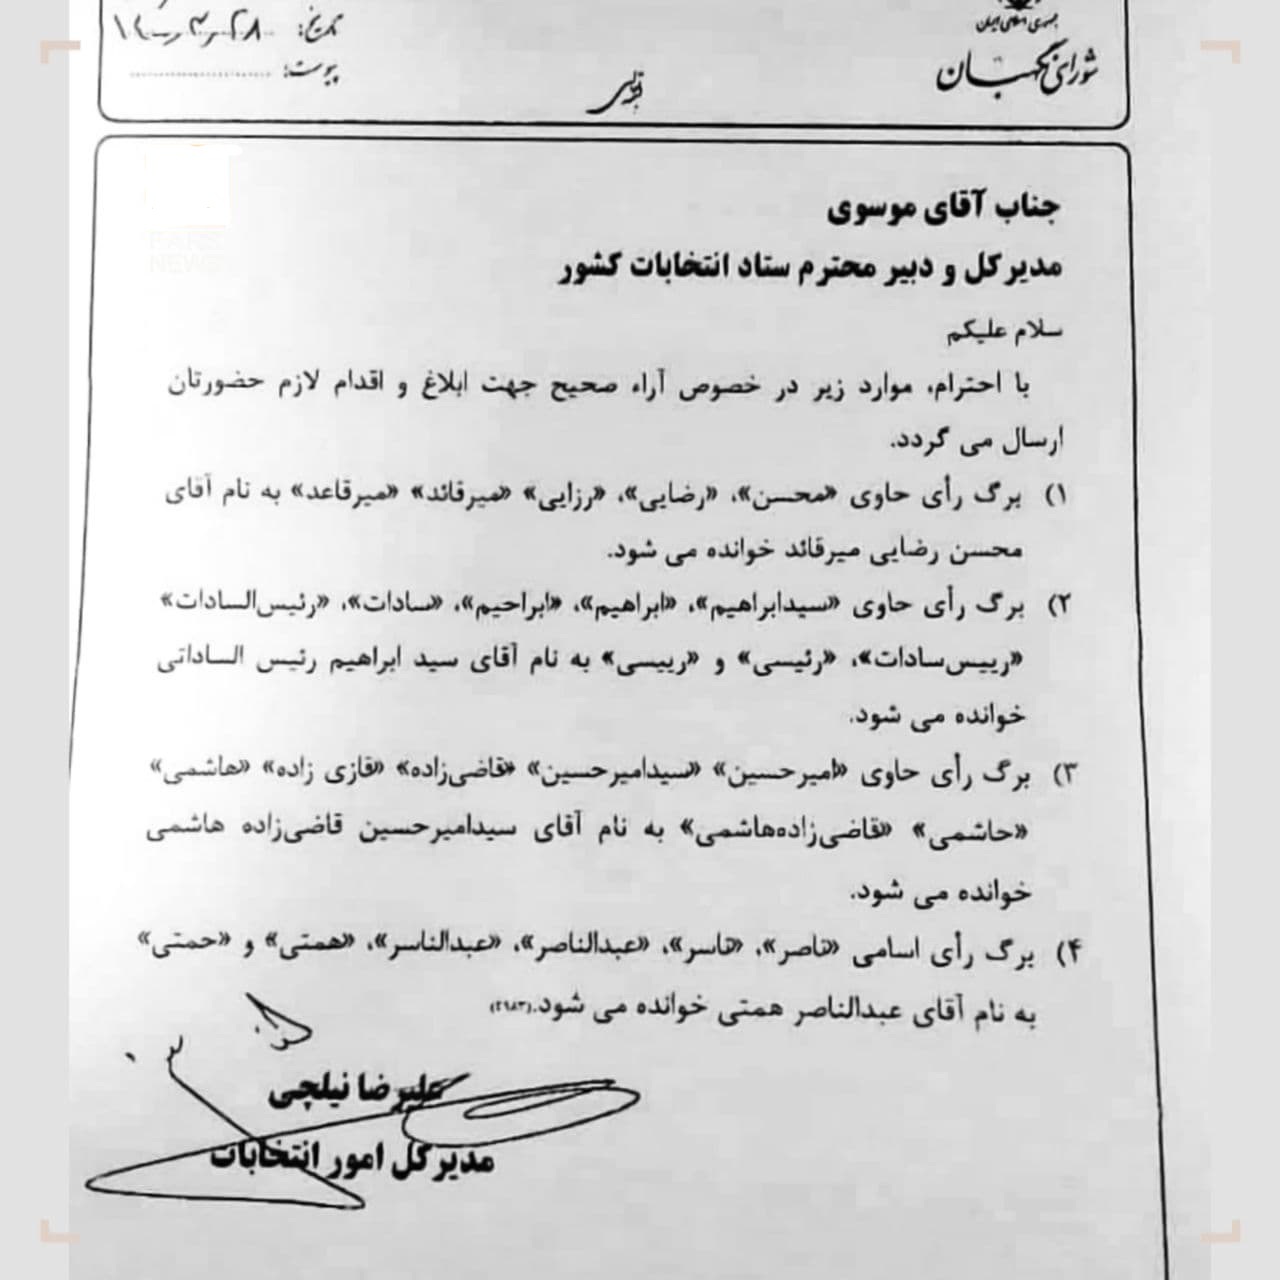 جمهوری اسلامی ایران
شورای نگهبان
تاریخ: ۱۴۰۰/۳/۲۸
پیوست:
بسمه تعالی
FARS
NEWS
جناب آقای موسوی
مدیرکل و دبیر محترم ستاد انتخابات کشور
سلام علیکم
با احترام، موارد زیر در خصوص آراء صحیح جهت ابلاغ و اقدام لازم حضورتان
ارسال می گردد.
۱) برگ رأی حاوی «محسن»، «رضایی»، «رزایی» «میرقائد» «میرقاعد» به نام آقای
محسن رضایی میرقائد خوانده می شود.
۲) برگ رأی حاوی «سیدابراهیم»، «ابراهیم»، «ابراحیم»، «سادات»، «رئیس‌السادات»
«رییس‌سادات»، «رئیسی» و «رییسی» به نام آقای سید ابراهیم رئیس الساداتی
خوانده می شود.
۳) برگ رأی حاوی «امیرحسین» «سیدامیرحسین» «قاضی‌زاده» «قازی زاده» «هاشمی»
«حاشمی» «قاضی‌زاده‌هاشمی» به نام آقای سیدامیرحسین قاضی‌زاده هاشمی
خوانده می شود.
۴) برگ رأی اسامی «ناصر»، «ناسر»، «عبدالناصر»، «عبدالناسر»، «همتی» و «حمتی»
به نام آقای عبدالناصر همتی خوانده می شود.(۲۹۸۳)
علیرضا نیلچی
مدیرکل امور انتخابات